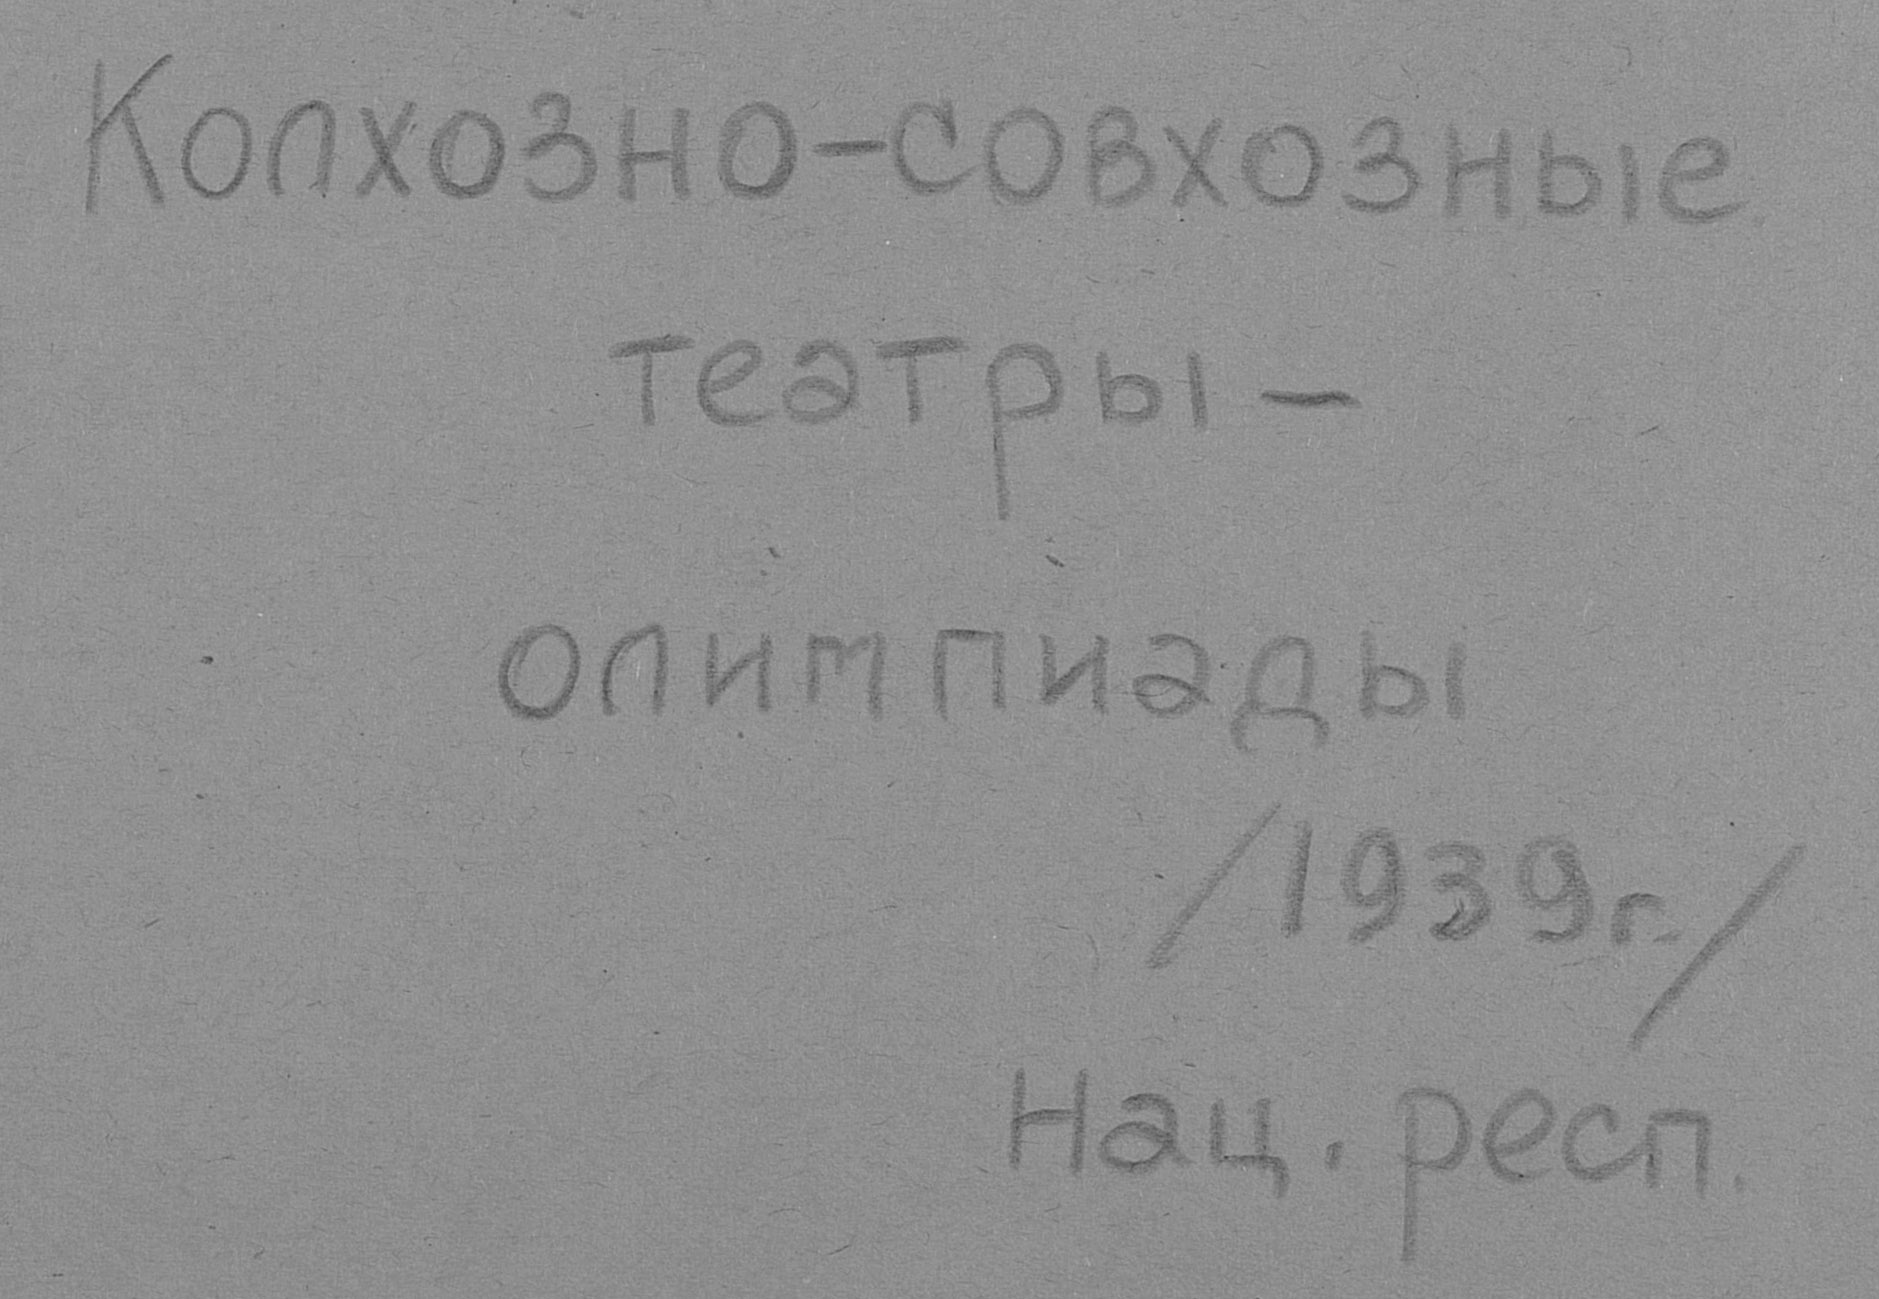 Колхозно-совхозные
театры -
олимпиады
/1939г./
Нац. респ.